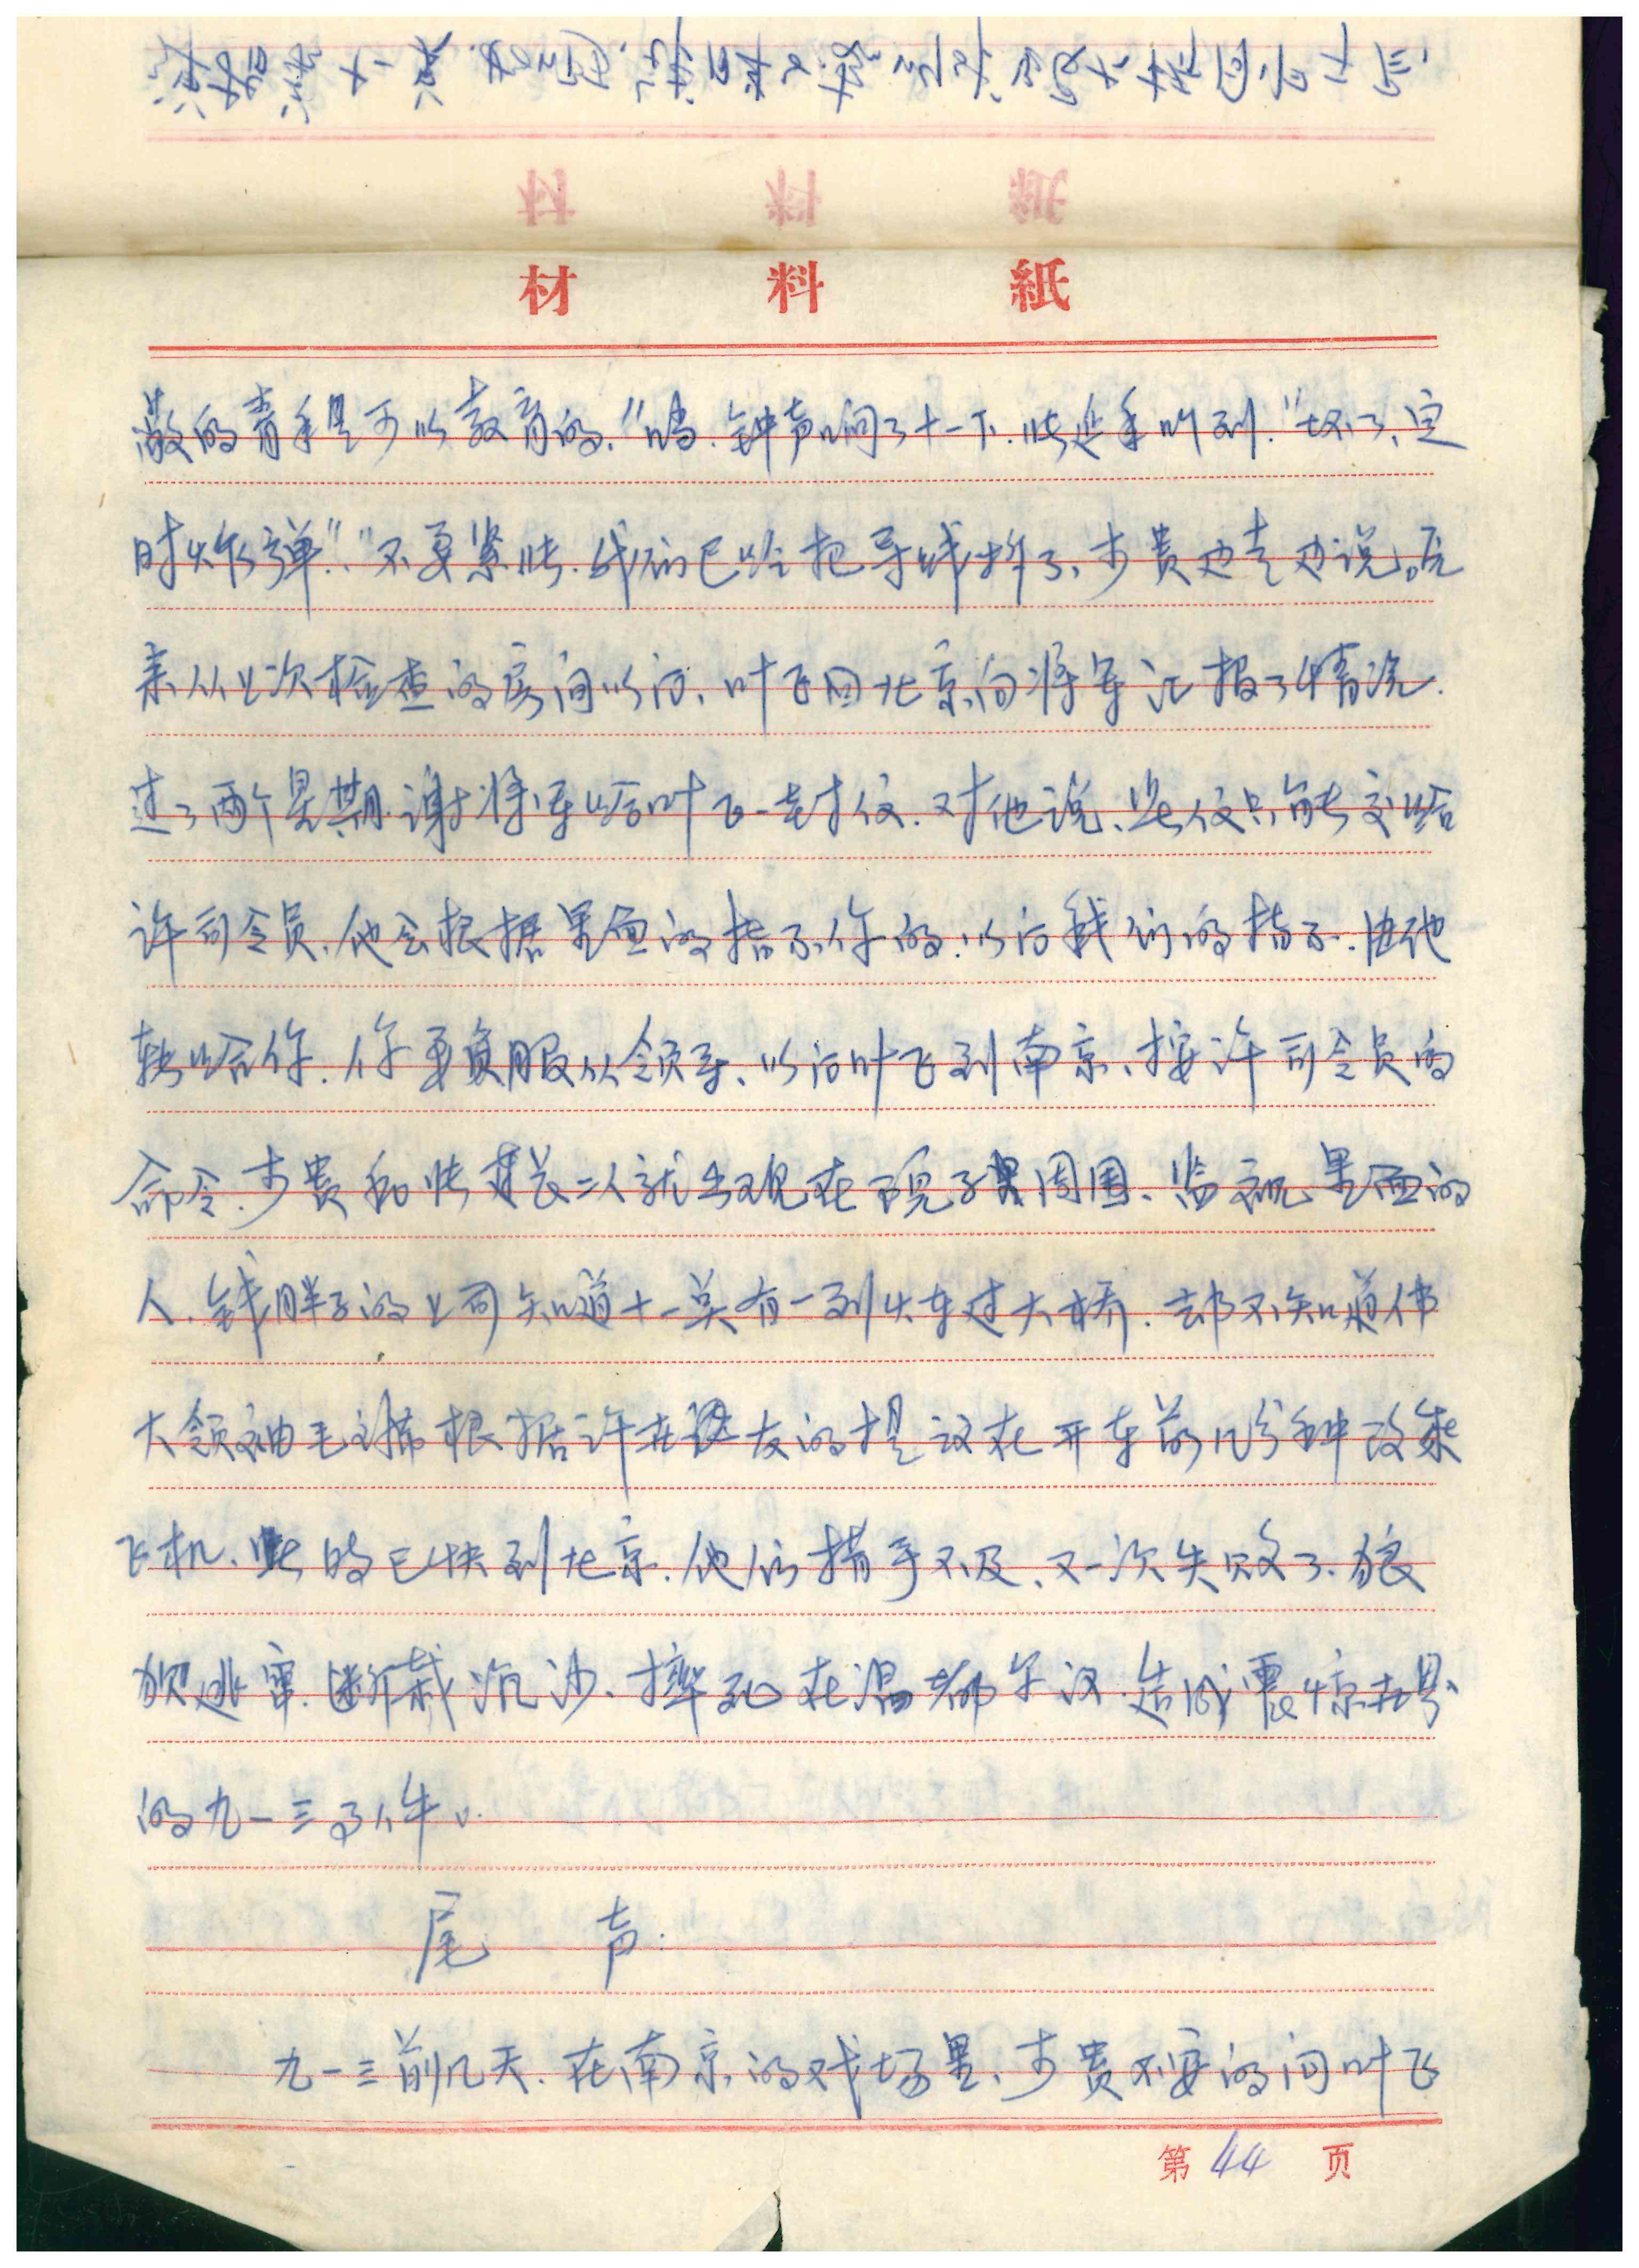 材料紙
敵的青年是可以教育的."噹.钟声响了十一下.张延年听到."坏了、定
时炸弹"."不要紧张.我们已经把导线拆了、步贵边走边说。原
来从上次检查的房间以后、叶飞回北京向将军汇报了情况.
过了两个星期.谢将军给叶飞一封信.对他说、此信只能交给
许司令员、他会根据里面的指示你的.以后我们的指示.由他
转给你.你要负服从领导、以后叶飞到南京、按许司令员的
命令.步贵和张莲长二人就出现在院子周围、监视里面的
人.钱胖子的上司知道十一点有一列火车过大桥.却不知道伟
大领袖毛主席根据许世友的提议在开车前几分钟改乘
飞机、此时已快到北京.他们措手不及、又一次失败了.狼
狈逃窜.折戟沉沙、摔死在温都尔汉.造成震惊世界
的九一三事件。
尾声.
九一三前几天.在南京的戏场里、步贵不安的问叶飞
第44页